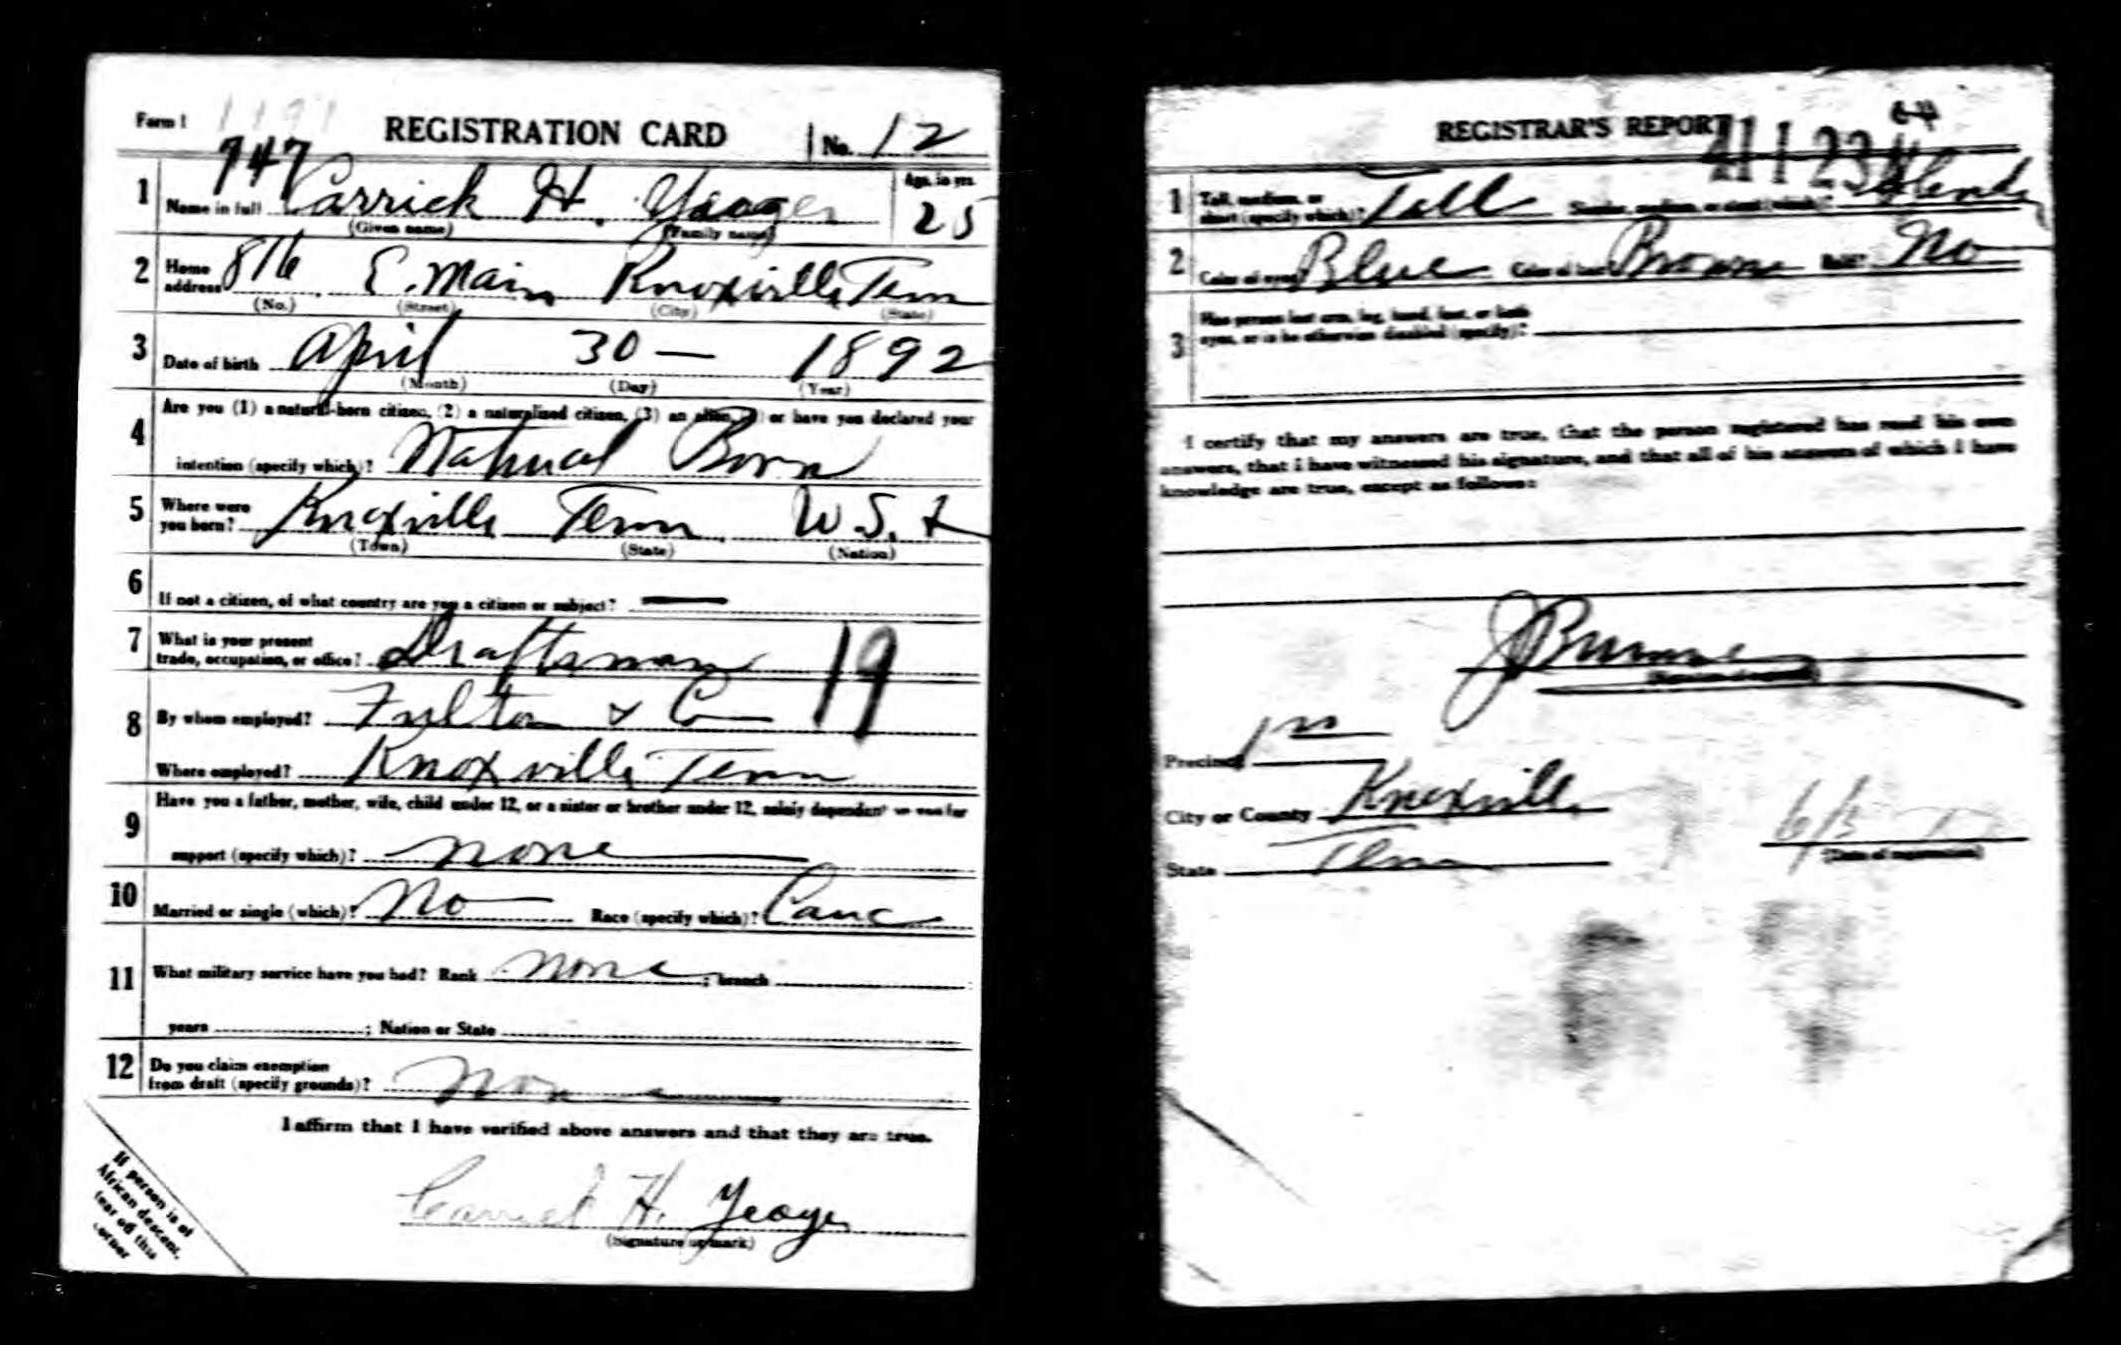 Form 1 1191 REGISTRATION CARD No. 12
747
1 Name in full Carrick H. Yeager Age, in yrs. 25
(Given name) (Family name)
2 Home address 816 E. Main Knoxville Tenn
(No.) (Street) (City) (State)
3 Date of birth April 30 — 1892
(Month) (Day) (Year)
4 Are you (1) a natural-born citizen, (2) a naturalized citizen, (3) an alien, (4) or have you declared your
intention (specify which)? Natural Born
5 Where were you born? Knoxville Tenn. U.S.A
(Town) (State) (Nation)
6 If not a citizen, of what country are you a citizen or subject? —
7 What is your present trade, occupation, or office? Draftsman 19
8 By whom employed? Fulton & Co
Where employed? Knoxville Tenn
9 Have you a father, mother, wife, child under 12, or a sister or brother under 12, solely dependent on you for
support (specify which)? none
10 Married or single (which)? No Race (specify which)? Cauc
11 What military service have you had? Rank none ; branch
years ; Nation or State
12 Do you claim exemption from draft (specify grounds)? None
I affirm that I have verified above answers and that they are true.
Carrick H. Yeager
(Signature or mark)
If person is of
African descent,
tear off this
corner
REGISTRAR'S REPORT
1 Tall, medium, or short (specify which)? Tall Slender, medium, or stout (which)? Slender
2 Color of eyes Blue Color of hair Brown Bald? No
3 Has person lost arm, leg, hand, foot, or both
eyes, or is he otherwise disabled (specify)?
I certify that my answers are true, that the person registered has read his own
answers, that I have witnessed his signature, and that all of his answers of which I have
knowledge are true, except as follows:
(Signature of registrar)
Precinct
City or County Knoxville
State Tenn
(Date of registration)